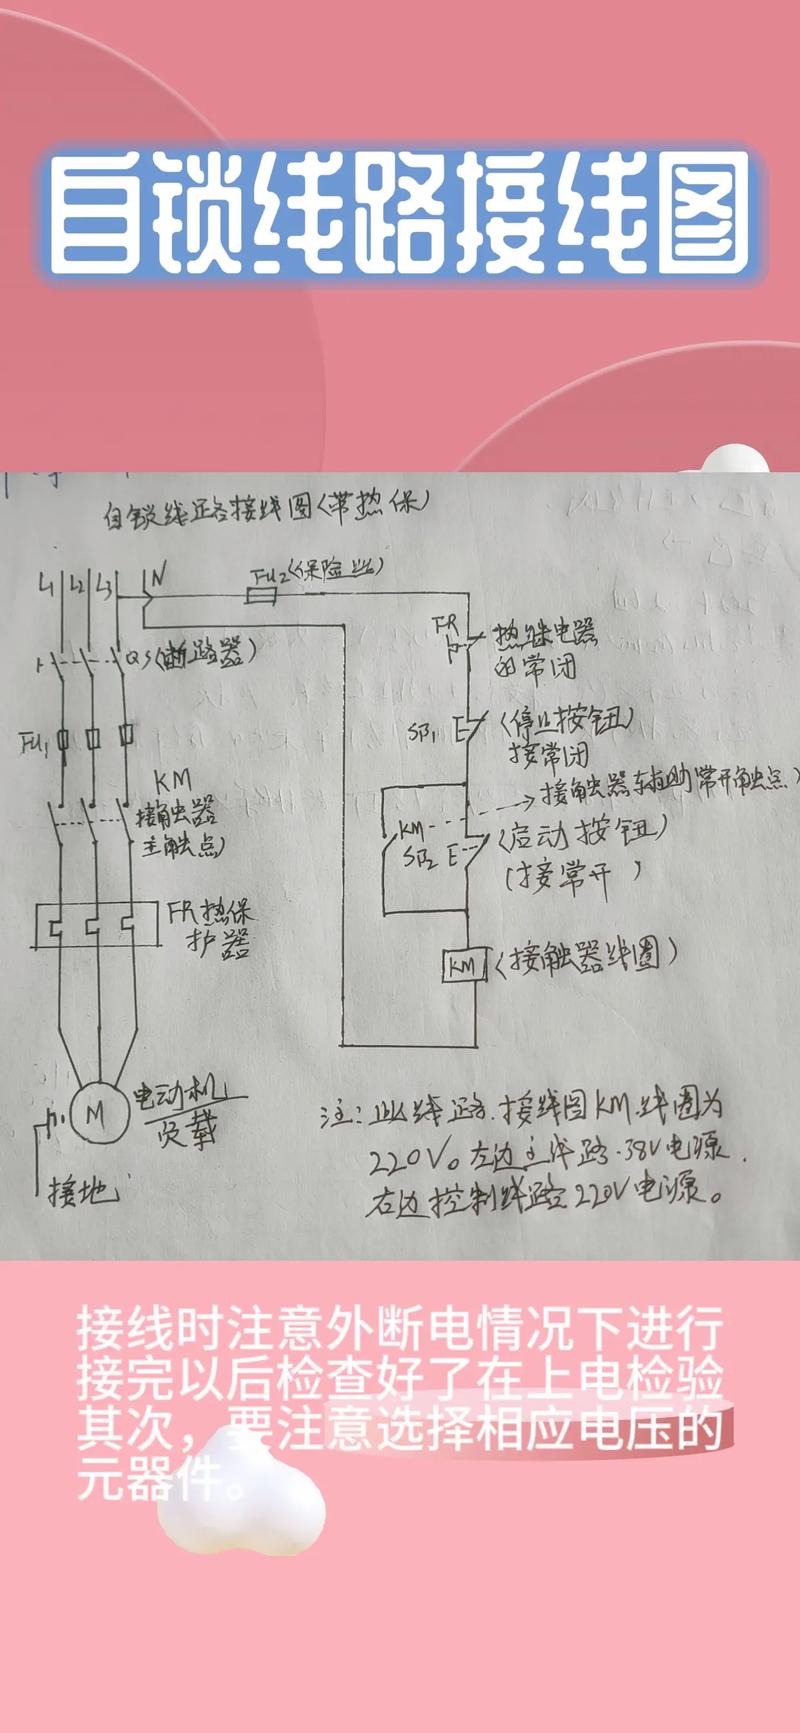 自锁线路接线图
自锁线路接线图(带热保)
L1 L2 L3 N
FU2(保险丝)
QS(断路器)
FR
热继电器
的常闭
FU1
SB1 E (停止按钮)
接常闭
KM
接触器
主触点)
接触器辅助常开触点)
KM
SB2 E (启动按钮)
(接常开)
FR热保
护器
KM (接触器线圈)
M
电动机
负载
接地
注:此线路.接线图KM.线圈为
220V。左边主线路.38V电源.
右边控制线路220V电源。
接线时注意外断电情况下进行
接完以后检查好了在上电检验
其次,要注意选择相应电压的
元器件。